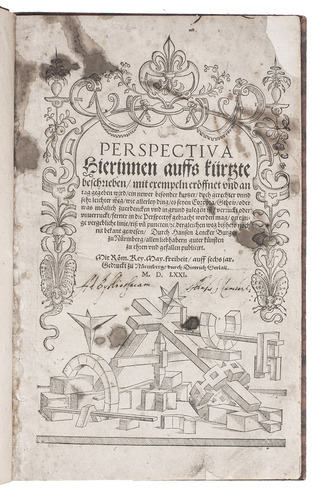 PERSPECTIVA
Hierinnen auffs kürtzte
beschrieben / mit exempeln eröffnet vnd an
tag gegeben wird / ein newer besonder kurtzer / doch gerechter vnnd
sehr leichter weg / wie allerley ding / es seyen Corpora / Gebew / oder
was möglich zuerdencken vnd in grund zulegen ist / verruckt oder
vnuerruckt / ferner in die Perspecyf gebracht werden mag / on einige
vergebliche linie / riß vñ puncten / ꝛc. dergleichen weg bißhero noch
nit bekant gewesen / Durch Hansen Lencker Burger
zu Nürnberg / allen liebhabern guter künsten
zu ehren vnd gefallen publicirt.
Mit Röm. Key. May. freiheit / auff sechs jar.
Gedruckt zu Nürnberg / durch Dietrich Gerlatz.
M. D. LXXI.